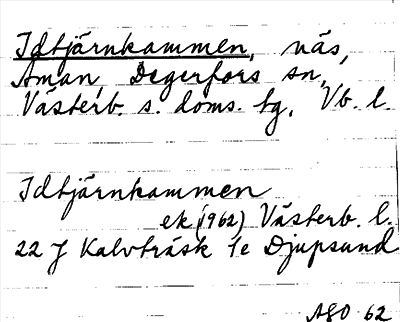 Idtjärnkammen, näs,
Åman, Degerfors sn,
Västerb. s. doms. tg, Vb. l.
Idtjärnkammen
ek (1962) Västerb. l.
22 J Kalvträsk 1e Djupsund
AGO 62